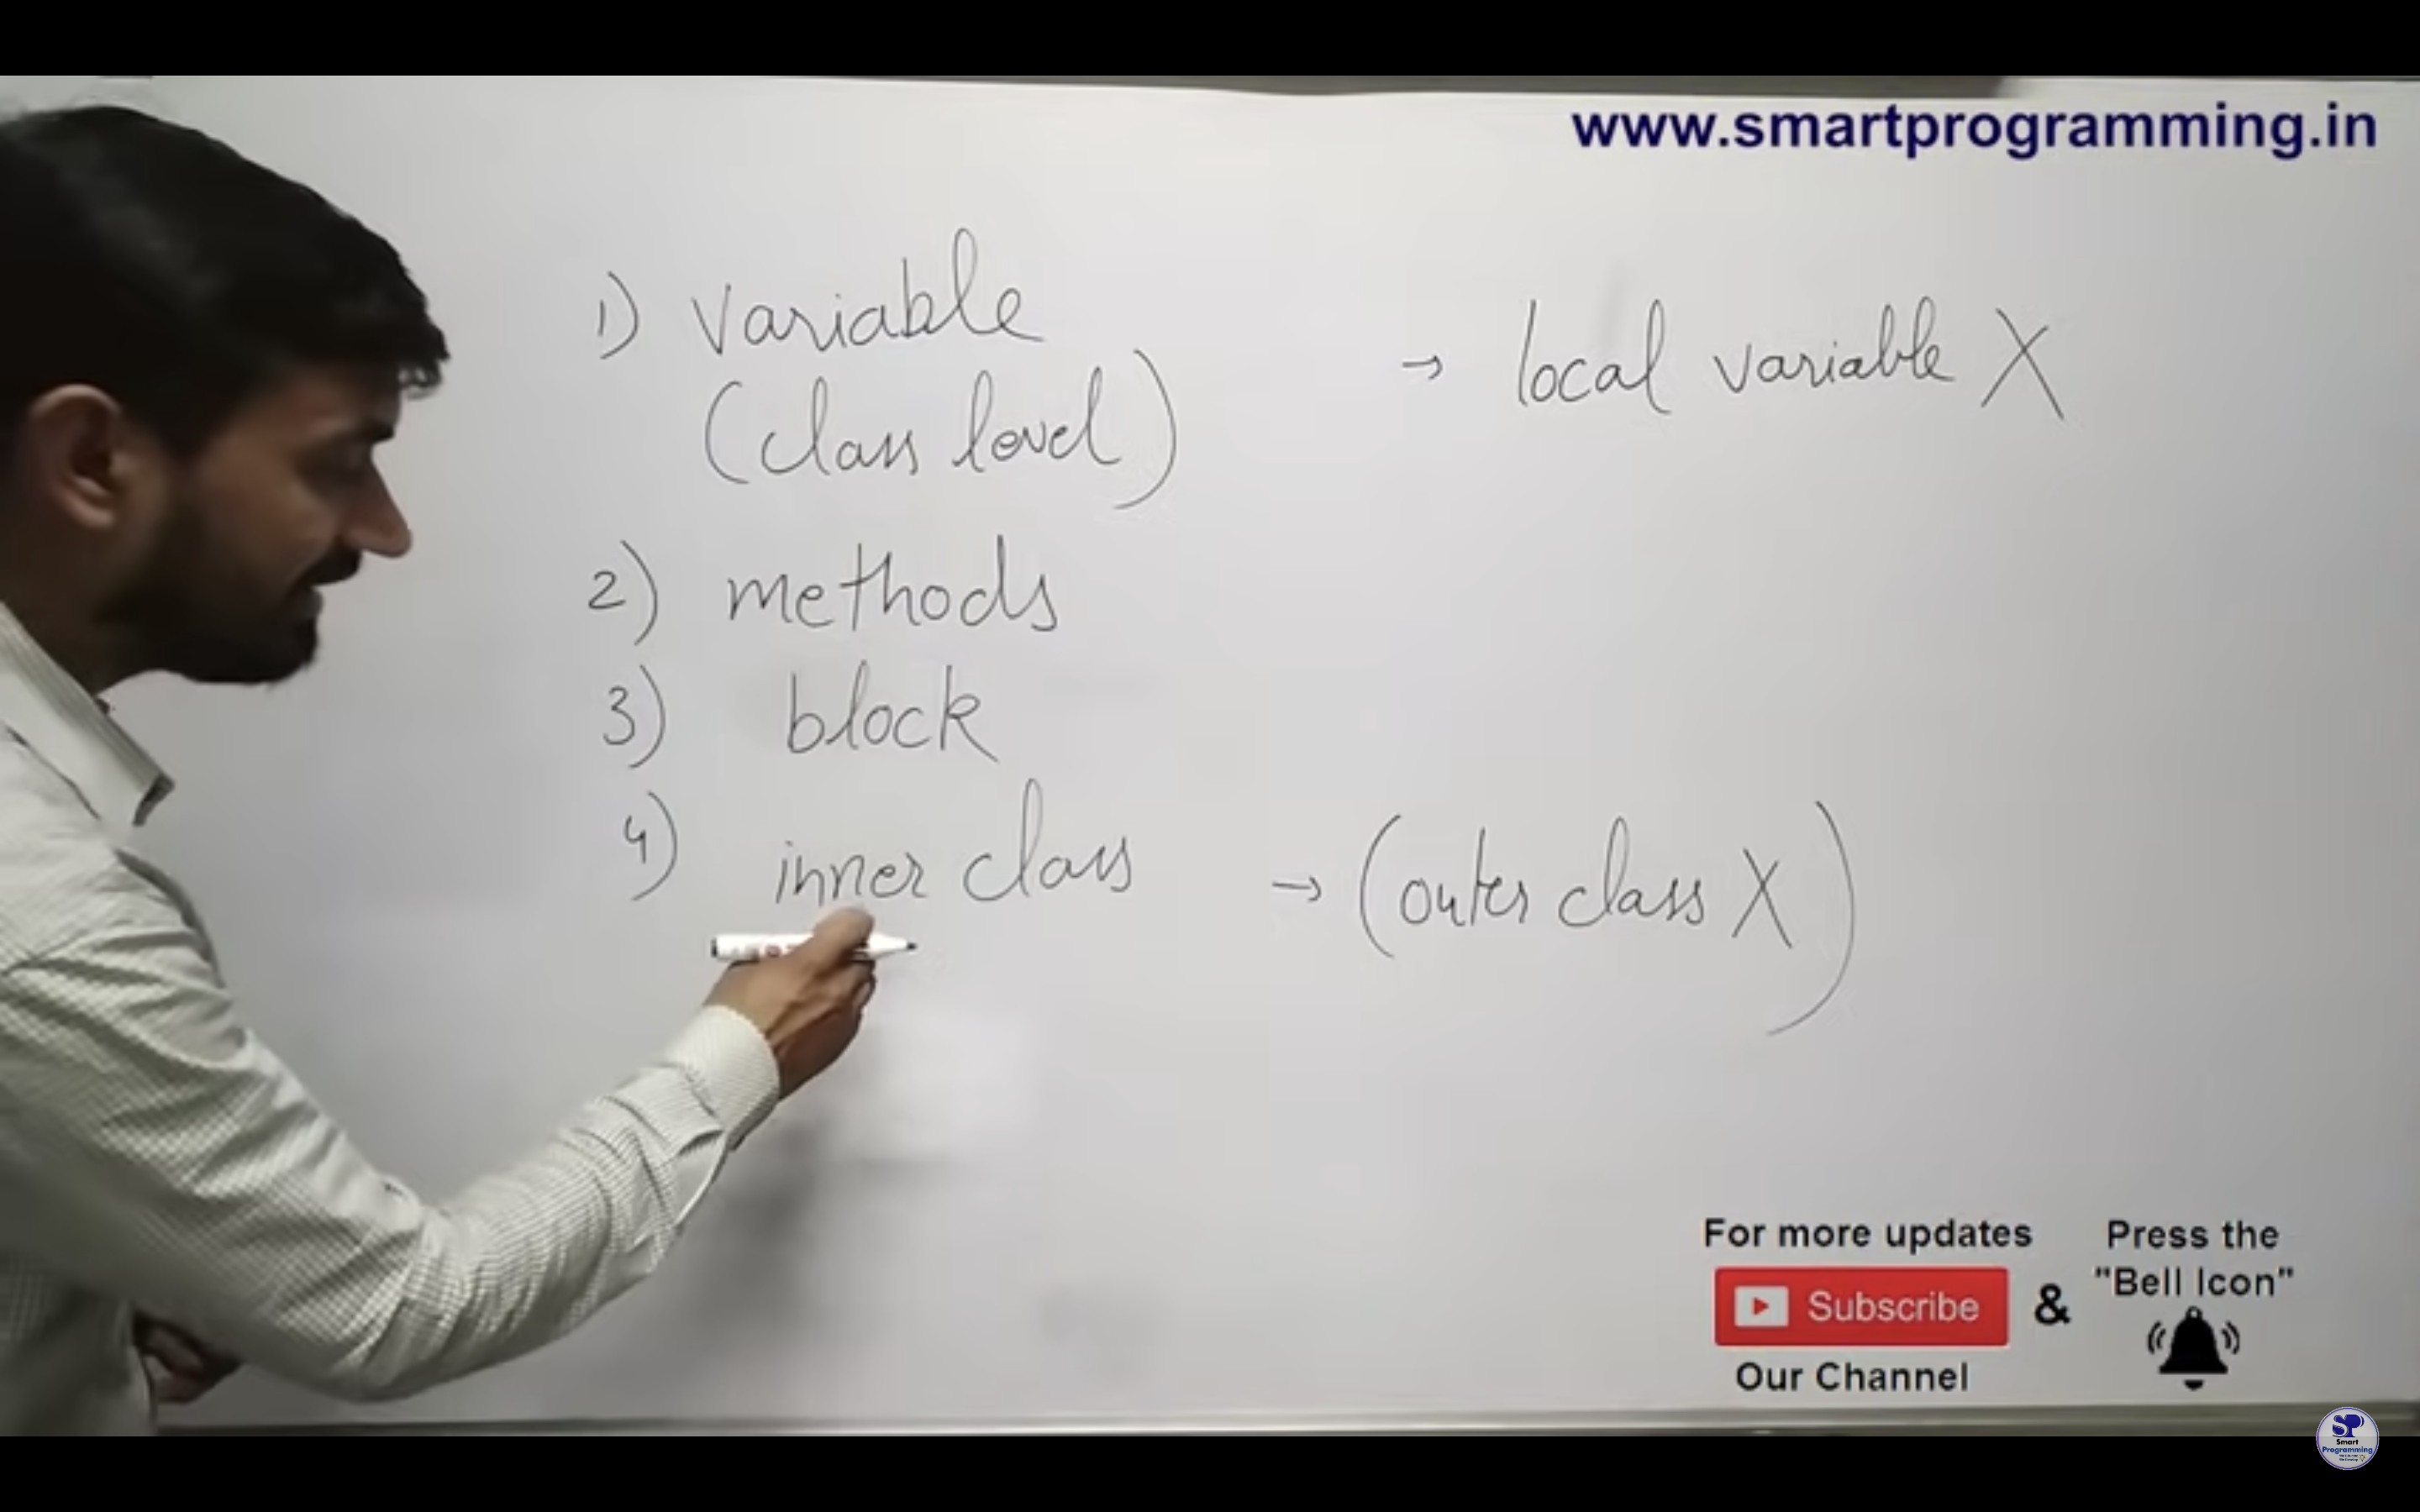 www.smartprogramming.in
1) Variable → local variable X
(class level)
2) methods
3) block
4) inner class → (outer class X)
For more updates
Subscribe
Our Channel
&
Press the
"Bell Icon"
SP
Smart
Programming